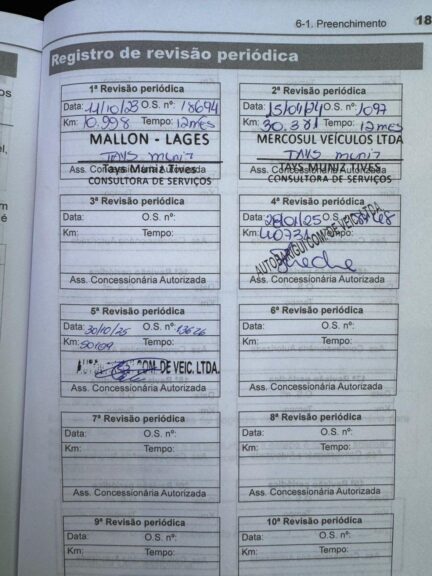 6-1. Preenchimento 18
Registro de revisão periódica
1ª Revisão periódica
Data: 11/10/23 O.S. nº: 18694
Km: 10.998 Tempo: 12 mes
MALLON - LAGES
TAYS MUNIZ
Ass. Concessionária Autorizada
Tays Muniz Tives
CONSULTORA DE SERVIÇOS
2ª Revisão periódica
Data: 15/04/24 O.S. nº: 1097
Km: 30.381 Tempo: 12 mes
MERCOSUL VEÍCULOS LTDA
TAYS MUNIZ
Ass. Concessionária Autorizada
TAYS MUNIZ TIVES
CONSULTORA DE SERVIÇOS
3ª Revisão periódica
Data: O.S. nº:
Km: Tempo:
Ass. Concessionária Autorizada
4ª Revisão periódica
Data: 28/01/25 O.S. nº:
Km: 40731 Tempo:
Ass. Concessionária Autorizada
5ª Revisão periódica
Data: 30/10/25 O.S. nº: 13626
Km: 50109
COM. DE VEIC. LTDA.
Ass. Concessionária Autorizada
6ª Revisão periódica
Data: O.S. nº:
Km: Tempo:
Ass. Concessionária Autorizada
7ª Revisão periódica
Data: O.S. nº:
Km: Tempo:
Ass. Concessionária Autorizada
8ª Revisão periódica
Data: O.S. nº:
Km: Tempo:
Ass. Concessionária Autorizada
9ª Revisão periódica
Data: O.S. nº:
Km: Tempo:
10ª Revisão periódica
Data: O.S. nº:
Km: Tempo: